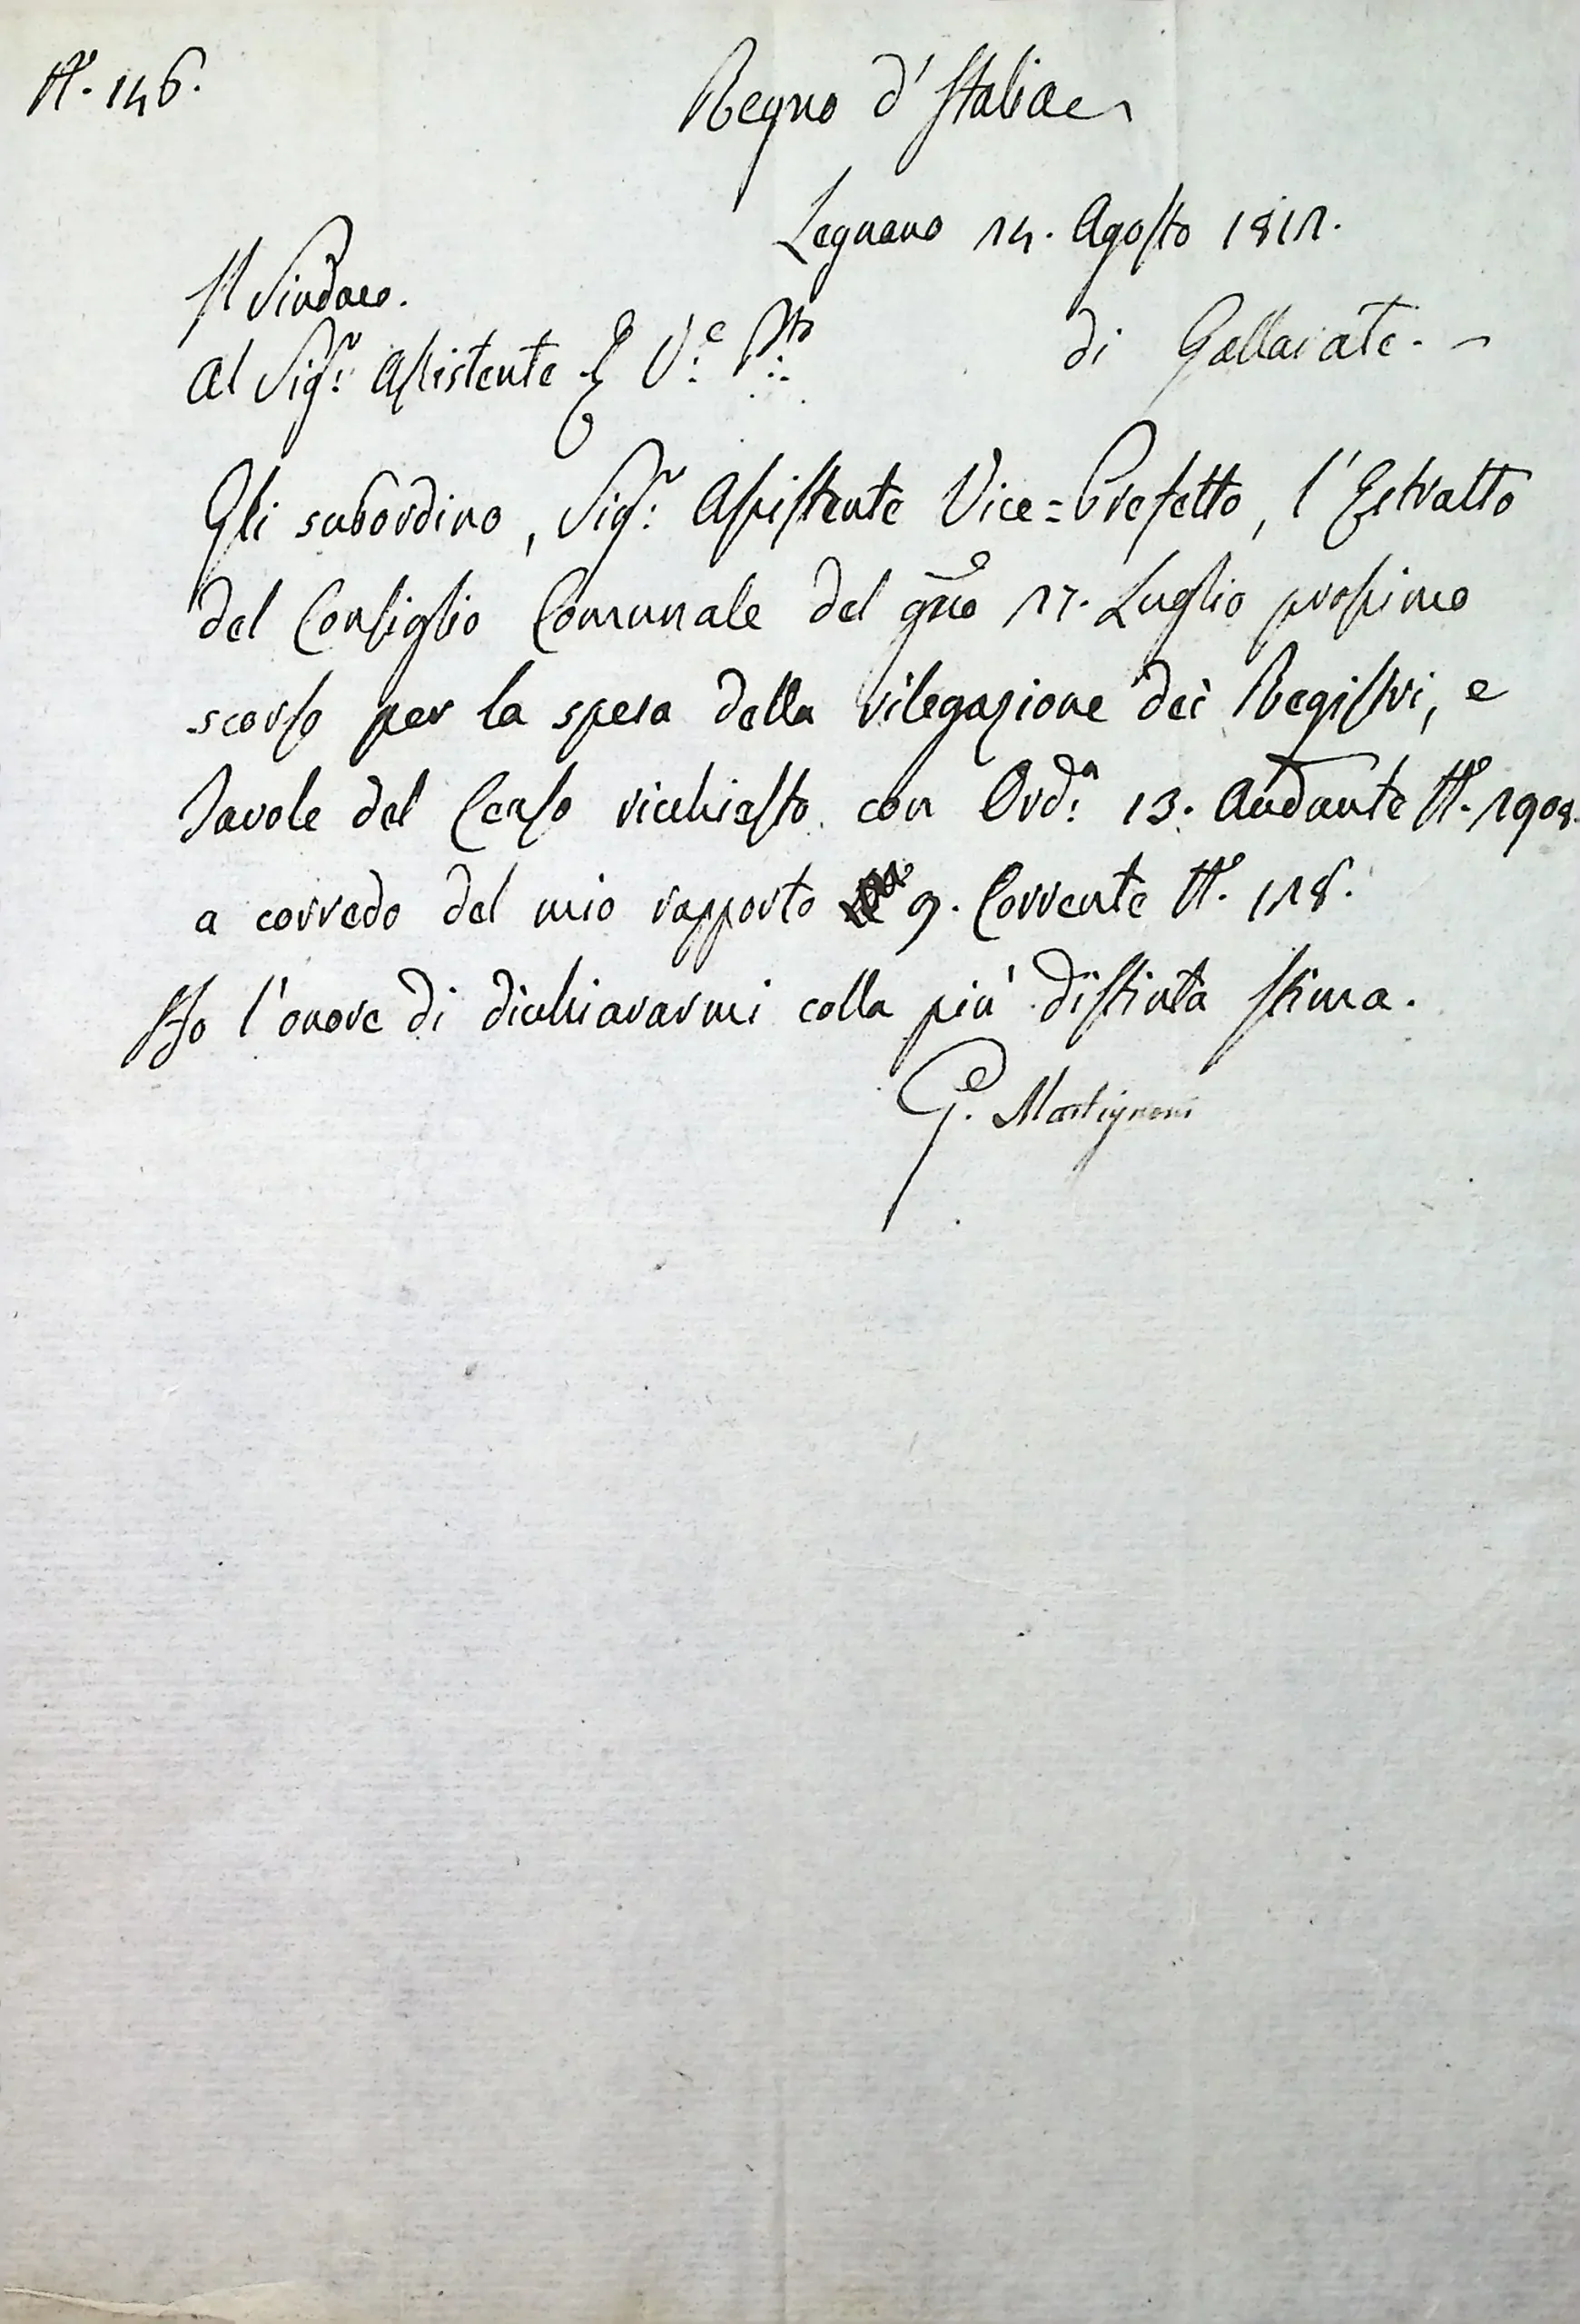 N.° 146.
Regno d'Italia
Legnano 14. Agosto 1811.
Il Sindaco.
Al Sig.r Assistente V.e P.to di Gallarate.
Gli subordino, Sig.r Assistente Vice=Prefetto, l'Estratto
del Consiglio Comunale del gno 17. Luglio prossimo
scorso per la spesa della rilegazione dei Registri, e
Tavole del Censo richiesto con Ord.a 13. Andante N.° 1908.
a corredo del mio rapporto 9. Corrente N.° 118.
Ho l'onore di dichiararmi colla più distinta stima.
G. Martignoni